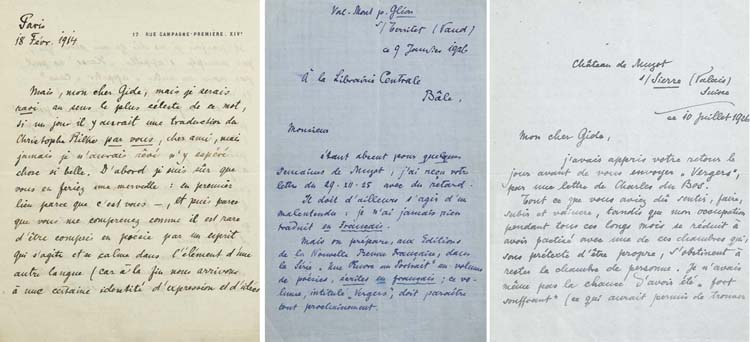 Paris
18 Févr. 1914
17 RUE CAMPAGNE-PREMIÈRE. XIVᵉ
Mais, mon cher Gide, mais je serais
ravi au sens le plus céleste de ce mot,
si un jour il y aurait une traduction du
Christophe Rilke par vous, cher ami, mais
jamais je n'aurai rêvé n'y espéré
chose si belle. D'abord je suis sûr que
vous en feriez une merveille : en premier
lieu parce que c'est vous —, et puis parce
que vous me comprenez comme il est rare
d'être compris en poésie par un esprit
qui s'agite et se calme dans l'élément d'une
autre langue (car à la fin nous arrivons
à une certaine identité d'expression et d'idées
Val-Mont p. Glion
s/ Territet (Vaud)
ce 9 Janvier 1926
À la Librairie Centrale
Bâle,
Monsieur
étant absent pour quelques
semaines de Muzot, j'ai reçu votre
lettre du 29.20.25 avec du retard.
Il doit d'ailleurs s'agir d'un
malentendu : je n'ai jamais rien
traduit en Français.
Mais on prépare, aux Editions
de la Nouvelle Revue Française, dans
la série "Une Œuvre un Portrait" un volume
de poésies, écrites en français ; ce vo-
lume, intitulé "Vergers", doit paraître
tout prochainement.
Château de Muzot
s/ Sierre (Valais)
Suisse
ce 10 juillet 1926
Mon cher Gide,
j'avais appris votre retour le
jour avant de vous envoyer "Vergers",
par une lettre de Charles du Bos.
Tout ce que vous aviez dû sentir, faire,
subir et vaincre, tandis que mon occupation
pendant tous ces longs mois se réduit à
avoir pactisé avec une de ces chambres qui,
sous prétexte d'être propre, s'obstinent à
rester la chambre de personne. Je n'avais
même pas la chance d'avoir été "fort
souffrant" (ce qui aurait permis de trouver